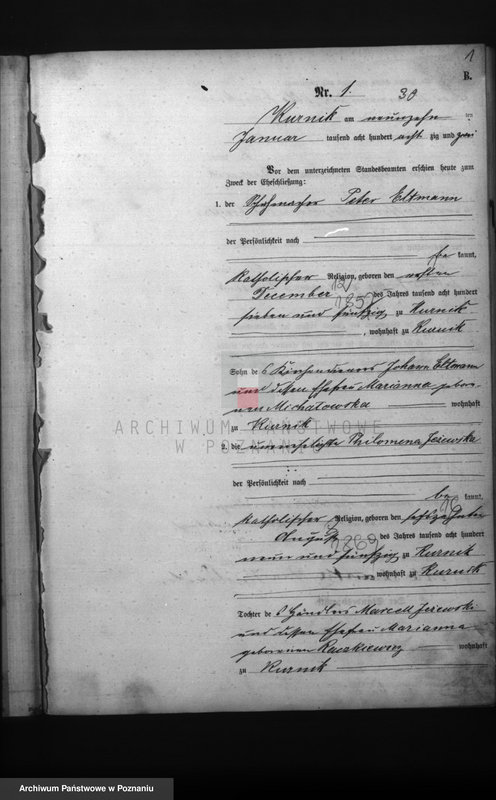 1
B.
Nr. 1.
30
Kurnik am neunzehn ten
Januar tausend acht hundert acht zig und zwei
Vor dem unterzeichneten Standesbeamten erschien heute zum
Zweck der Eheschließung:
1. der Schuhmacher Peter Eltmann
der Persönlichkeit nach
be kannt,
katholischer Religion, geboren den
12
December des Jahres tausend acht hundert
185
sieben und fünfzig zu Kurnik
, wohnhaft zu Kurnik
Sohn des Kirchendieners Johann Eltmann
und dessen Ehefrau Marianna gebor-
nen Michałowska wohnhaft
zu Kurnik
ARCHIWUM PAŃSTWOWE
W POZNANIU
2. die unverehelichte Philomena Jeżewska
der Persönlichkeit nach
be kannt,
katholischer Religion, geboren den sechszehnten
August des Jahres tausend acht hundert
neun und fünfzig zu Kurnik
wohnhaft zu Kurnik
Tochter des Händlers Marcell Jeżewski
und dessen Ehefrau Marianna
geborenen Raczkiewicz wohnhaft
zu Kurnik
Archiwum Państwowe w Poznaniu